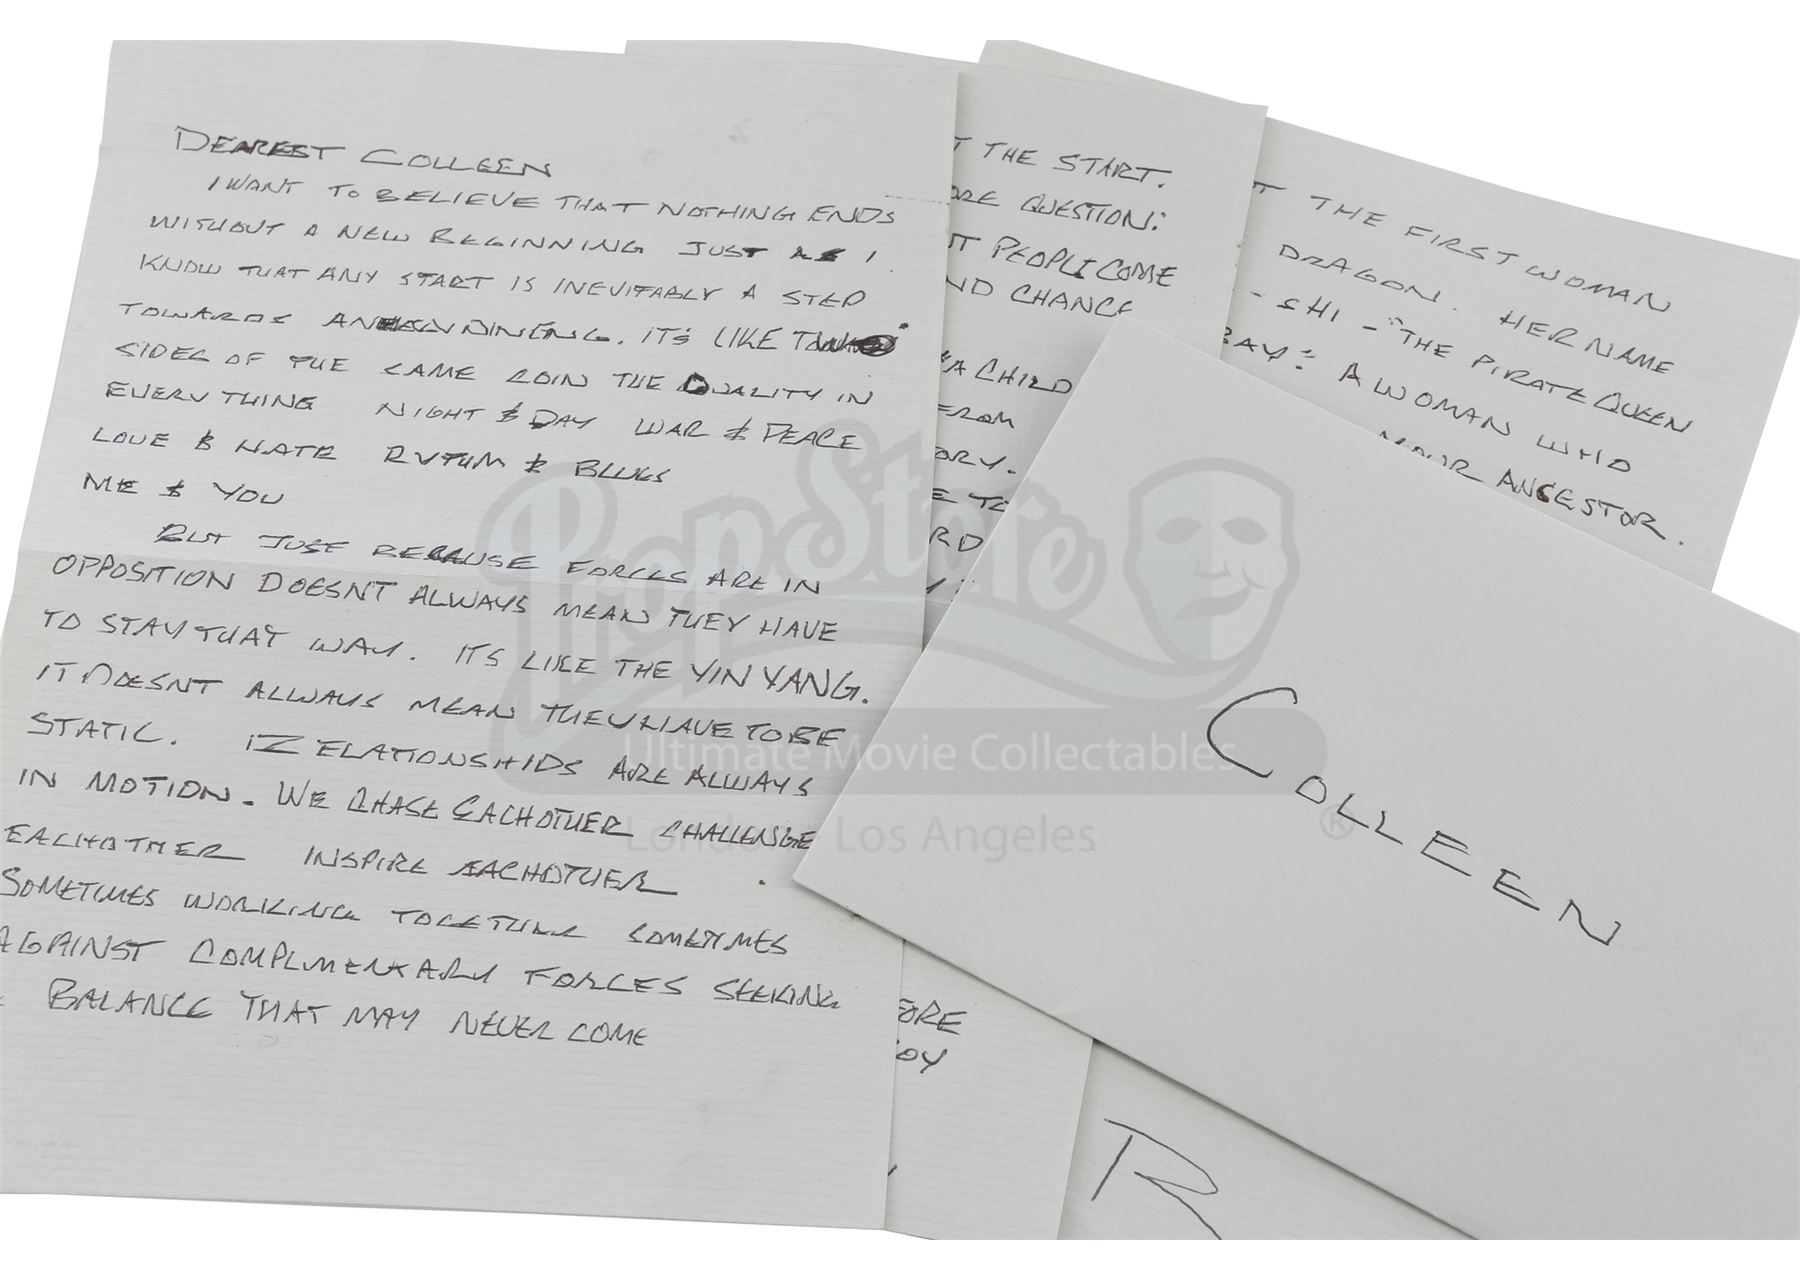 DEAREST COLLEEN
I WANT TO BELIEVE THAT NOTHING ENDS
WITHOUT A NEW BEGINNING JUST AS I
KNOW THAT ANY START IS INEVITABLY A STEP
TOWARDS AN. IT'S LIKE TWO
SIDES OF THE SAME COIN THE DUALITY IN
EVERYTHING NIGHT & DAY WAR & PEACE
LOVE & HATE RYTHM & BLUES
ME & YOU
BUT JUST BECAUSE FORCES ARE IN
OPPOSITION DOESNT ALWAYS MEAN THEY HAVE
TO STAY THAT WAY. ITS LIKE THE YIN YANG.
IT DOESNT ALLWAYS MEAN THEY HAVE TO BE
STATIC. RELATIONSHIPS ARE ALWAYS
IN MOTION. WE CHASE EACHOTHER CHALLENGE
EACHOTHER INSPIRE EACHOTHER.
SOMETIMES WORKING TOGETHER SOMETIMES
AGAINST COMPLIMENTARY FORCES SEEKING
BALANCE THAT MAY NEVER COME
T THE START.
ORE QUESTION:
NT PEOPLE COME
ND CHANCE
A CHILD
FROM
ORY.
E TO
RD
Y:
FORE
BOY
T THE FIRST WOMAN
DRAGON. HER NAME
- SHI - "THE PIRATE QUEEN
BAY": A WOMAN WHO
YOUR ANCESTOR.
R
COLLEEN
PropStore
Ultimate Movie Collectables
London Los Angeles
®